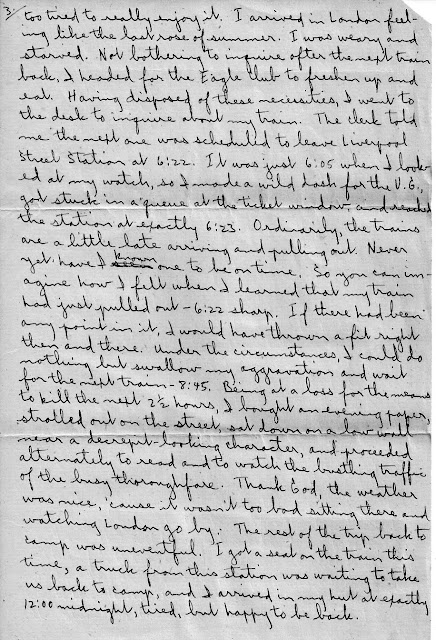 3/
too tired to really enjoy it. I arrived in London feel-
ing like the last rose of summer. I was weary and
starved. Not bothering to inquire after the next train
back, I headed for the Eagle Club to freshen up and
eat. Having disposed of these necessities, I went to
the desk to inquire about my train. The clerk told
me the next one was scheduled to leave Liverpool
Street Station at 6:22. It was just 6:05 when I look-
ed at my watch, so I made a wild dash for the U.G.,
got stuck in a queue at the ticket window, and reached
the station at exactly 6:23. Ordinarily, the trains
are a little late arriving and pulling out. Never
yet have I known one to be on time. So you can im-
agine how I felt when I learned that my train
had just pulled out - 6:22 sharp. If there had been
any point in it, I would have thrown a fit right
then and there. Under the circumstances, I could do
nothing but swallow my aggravation and wait
for the next train - 8:45. Being at a loss for the means
to kill the next 2½ hours, I bought an evening paper,
strolled out on the street, sat down on a low wall
near a decrepit-looking character, and proceeded
alternately to read and to watch the bustling traffic
of the busy thoroughfare. Thank God, the weather
was nice, 'cause it wasn't too bad sitting there and
watching London go by. The rest of the trip back to
camp was uneventful. I got a seat on the train this
time, a truck from this station was waiting to take
us back to camp, and I arrived in my hut at exactly
12:00 midnight, tired, but happy to be back.